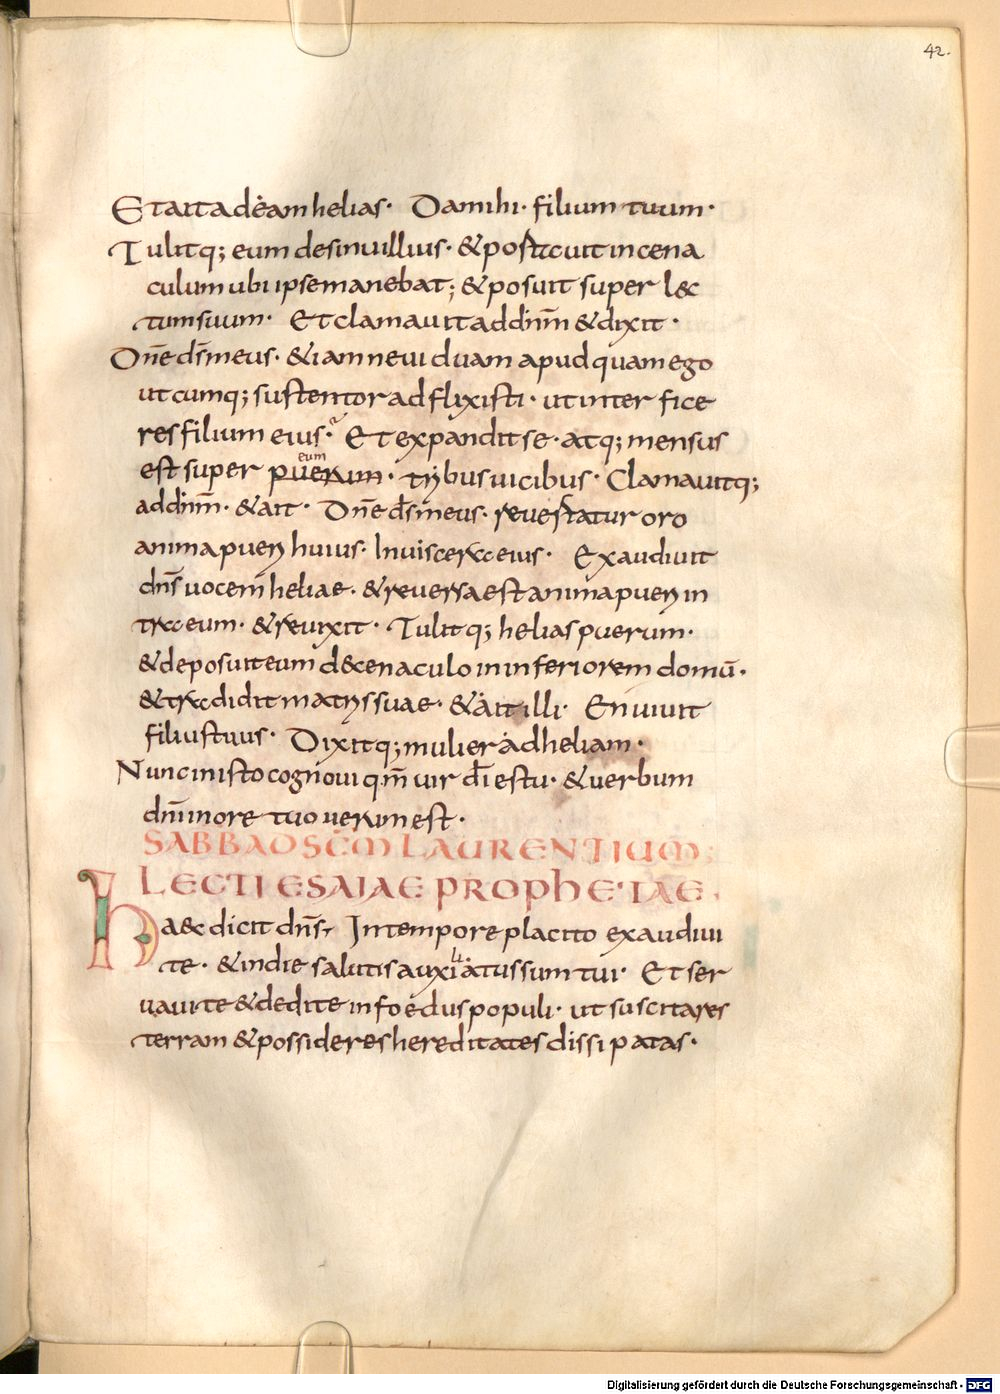 42.
Et ait ad eam helias· Da mihi· filium tuum·
Tulitq; eum de sinu illius· & postcuit in cena
culum ubi ipse manebat; & posuit super l&c
tum suum· Et clamauit ad dñm & dixit·
Dñe ds̄ meus· & iam ne uiduam apud quam ego
utcumq; sustentor adflixisti· ut inter fice
res filium eius· Et expandit se· atq; mensus
eum
est super puerum· trybus uicibus· Clamauitq;
ad dñm· & ait· Dñe ds̄ meus· reuertatur oro
anima pueri huius· In uiscera eius· Exaudiuit
dñs uocem heliae· & reuersa est anima pueri in
tra eum· & reuixit· Tulitq; helias puerum·
& deposuit eum d& cenaculo in inferiorem domū·
& tradidit matri suae· & ait illi· En uiuit
filius tuus· Dixitq; mulier ad heliam·
Nunc in isto cognoui qm̄ uir dī es tu· & uerbum
dñi in ore tuo uerum est·
SABBAO SCM LAURENTIUM;
LECTI ESAIAE PROPHETAE·
Haec dicit dñs· In tempore placito exaudiui
li
te· & in die salutis auxiatus sum tui· Et ser
uaui te & dedi te in foedus populi· ut suscitares
terram & possideres hereditates dissipatas·
Digitalisierung gefördert durch die Deutsche Forschungsgemeinschaft - DFG